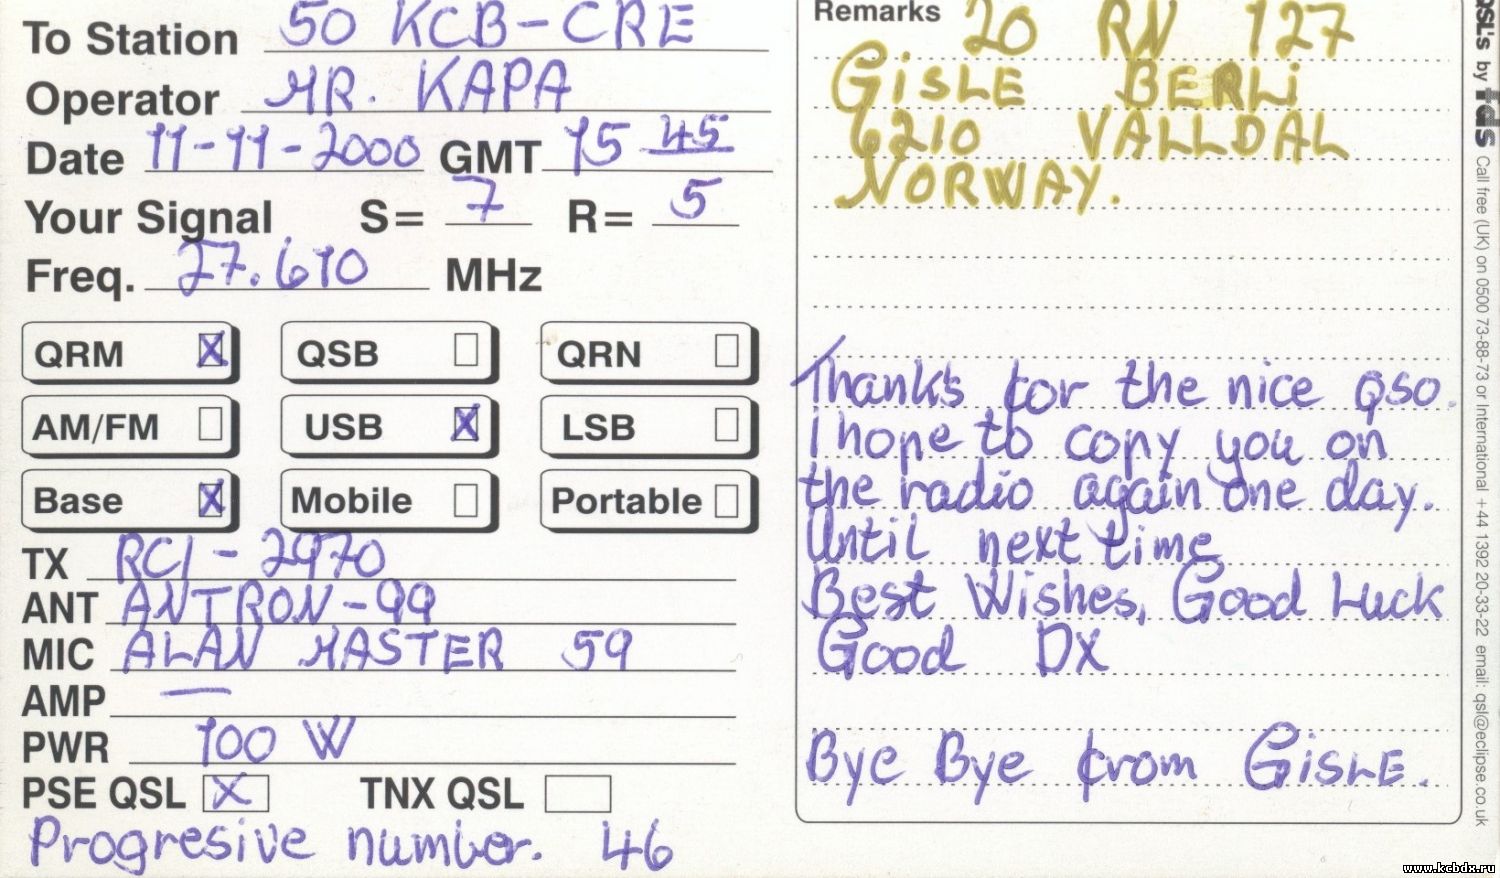 To Station 50 KCB-CRE
Operator MR. KAPA
Date 11-11-2000 GMT 15 45
Your Signal S= 7 R= 5
Freq. 27.610 MHz
QRM X QSB QRN
AM/FM USB X LSB
Base X Mobile Portable
TX RCI-2970
ANT ANTRON-99
MIC ALAN MASTER 59
AMP —
PWR 100 W
PSE QSL X TNX QSL
Progresive number. 46
Remarks 20 RN 127
GISLE BERLI
6210 VALLDAL
NORWAY.
Thanks for the nice QSO.
I hope to copy you on
the radio again one day.
Until next time
Best Wishes, Good Luck
Good DX
Bye Bye from GISLE.
QSL's by tds Call free (UK) on 0500 73-88-73 or International +44 1392 20-33-22 email: qsl@eclipse.co.uk
www.kcbdx.ru